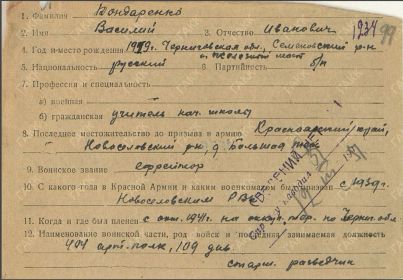 1. Фамилия Бондаренко
2. Имя Василий 3. Отчество Иванович 1934 97
4. Год и место рождения 1919, Черниговская обл., Семеновский р-н
5. Национальность русский 6. Партийность б/п
7. Профессия и специальность
а) военная
б) гражданская учитель нач. школы
8. Последнее местожительство до призыва в армию Красноярский край,
Новоселовский р-н, д. Большой
9. Воинское звание ефрейтор
10. С какого года в Красной Армии и каким военкоматом был призван с 1939 г.
Новоселовским РВК
11. Когда и где был пленен с окт. 1941 г. на оккуп. тер. по Черн. обл.
12. Наименование воинской части, род войск и последняя занимаемая должность
404 арт. полк, 109 див.
старш. разведчик